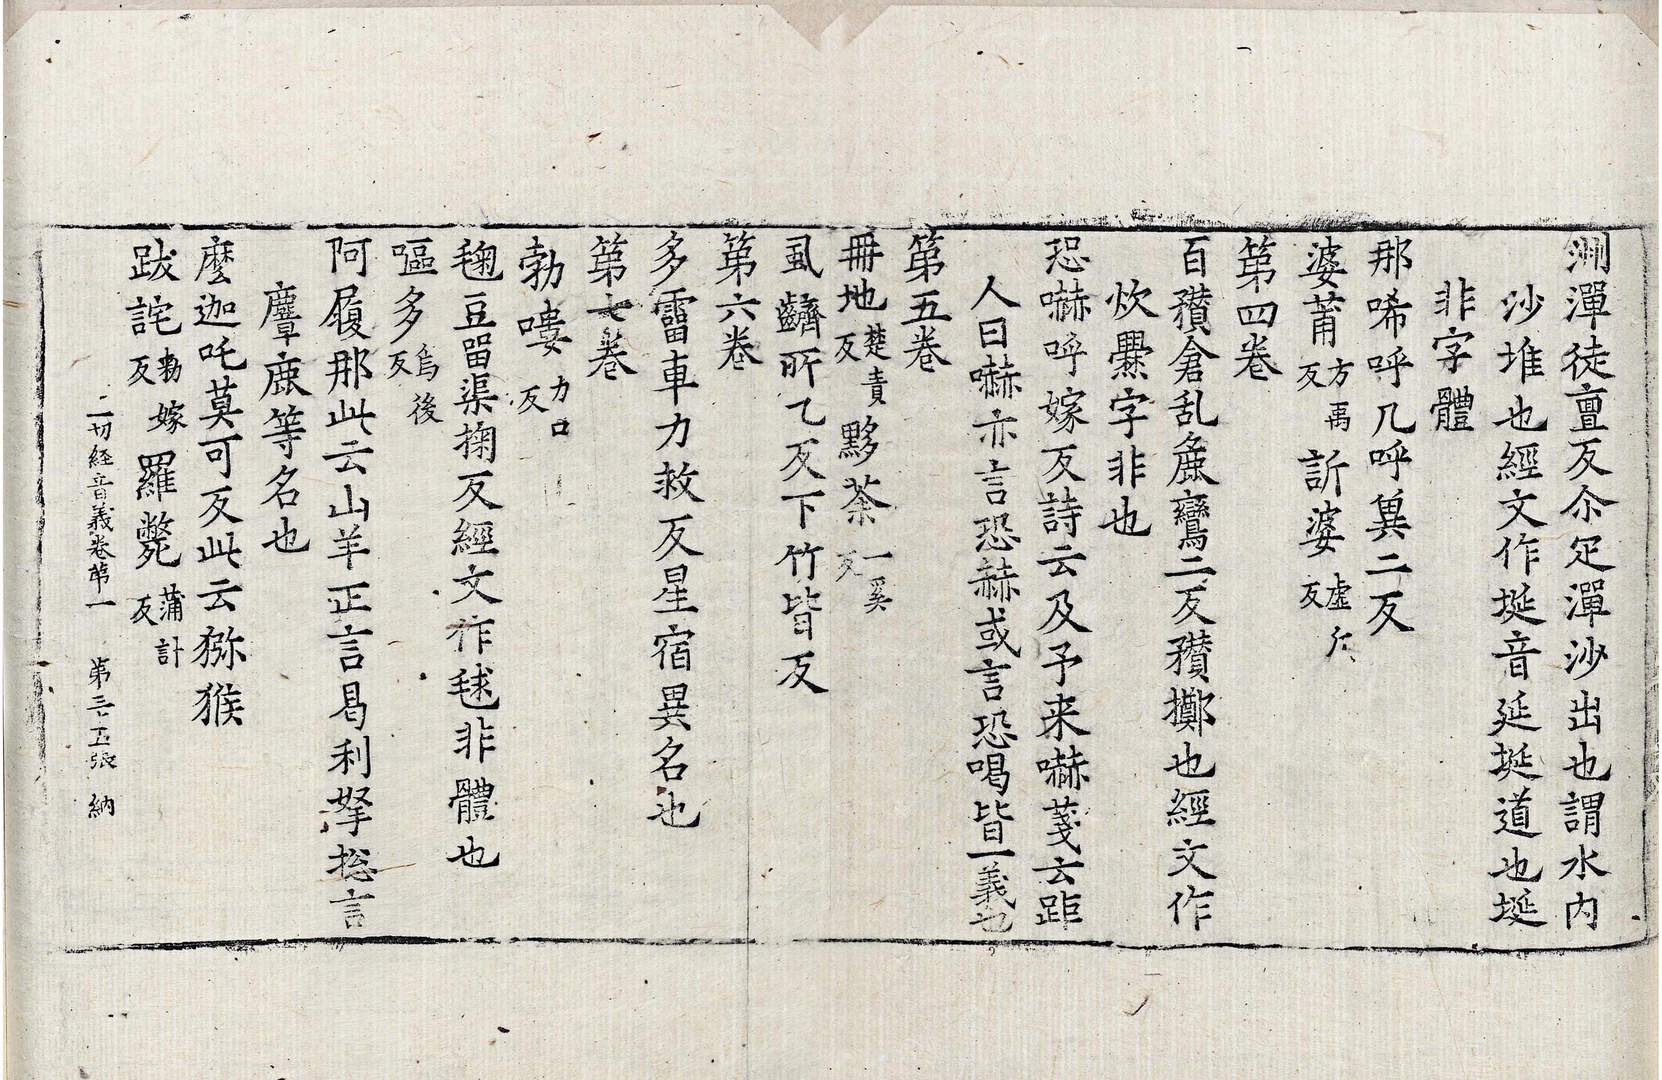 洲潬徒亶反尒疋潬沙出也謂水内
沙堆也經文作埏音延埏道也埏
非字體
那唏呼几呼兾二反
婆莆方禹反訢婆虛斤反
第四卷
百穳倉乱麁鸞二反穳擲也經文作
炊爨字非也
恐嚇呼嫁反詩云及予来嚇䇳云距
人曰嚇亦言恐赫或言恐喝皆一義也
第五卷
冊地楚責反黟荼一奚反
虱齌所乙反下竹皆反
第六卷
多霤車力救反星宿異名也
第七卷
勃嘍力口反
毱豆留渠掬反經文作毬非體也
嘔多烏後反
阿履那此云山羊正言曷利拏揔言
麞鹿等名也
麽迦吒莫可反此云猕猴
跋詫勑嫁反羅斃蒲計反
一切経音義卷第一 第三十五張 納